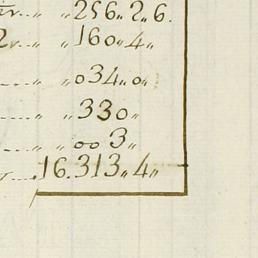 „ 256„ 2„ 6.
„ 160„ 4„
„ „ 034„ 0„
„ „ 330„
„ „ 00 3„
16.313„ 4„